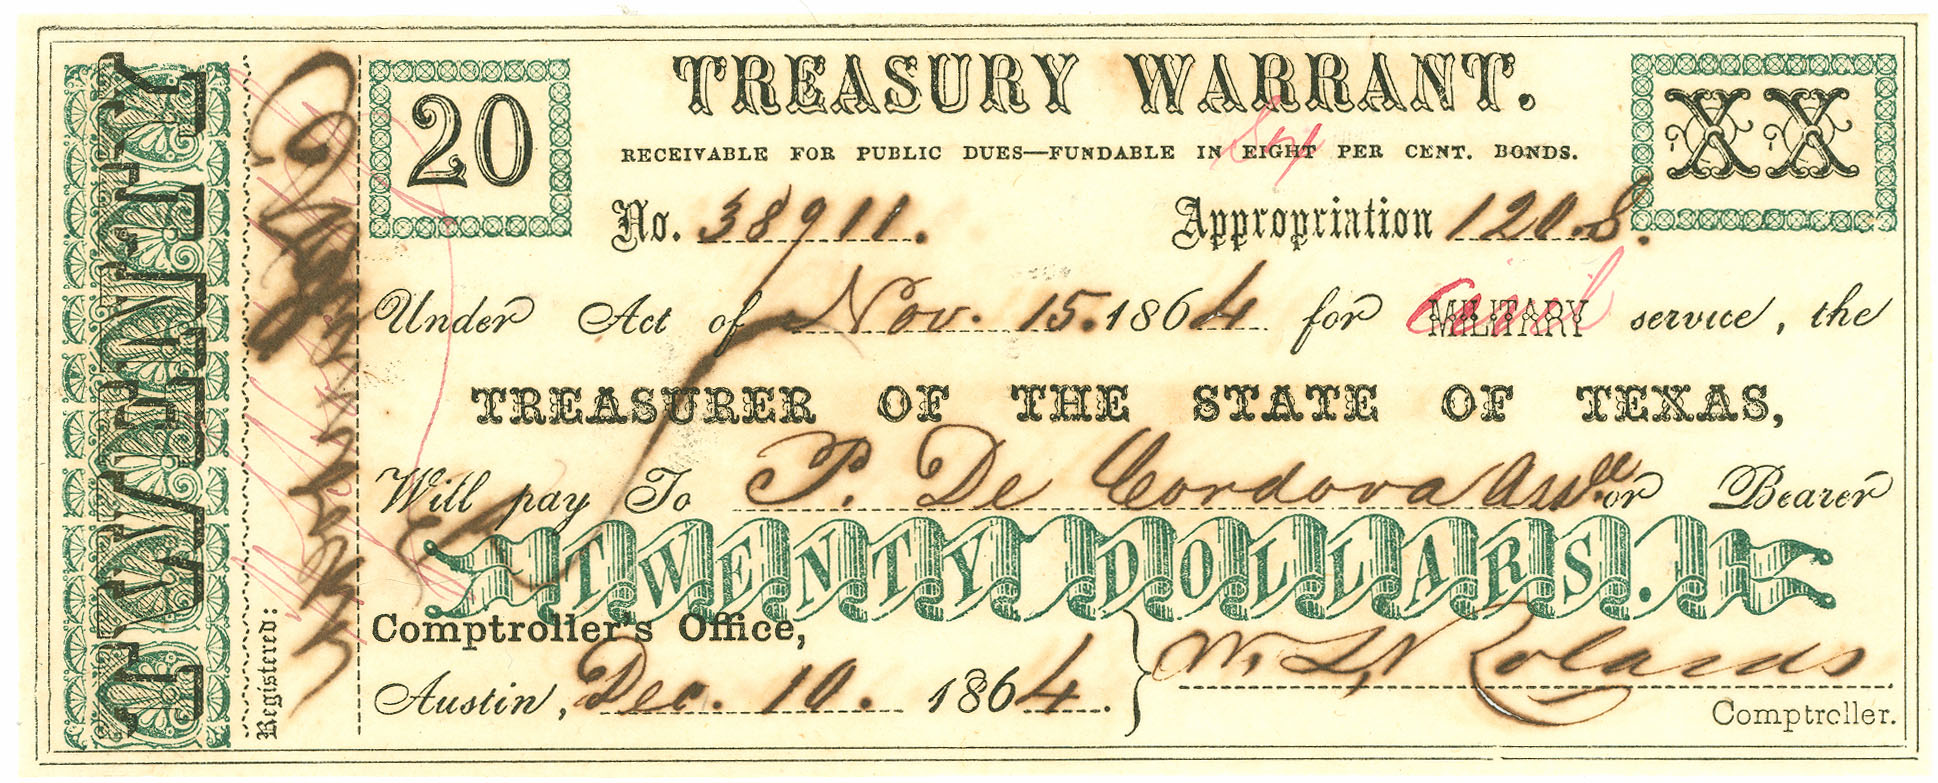 TWENTY
Registered:
20
TREASURY WARRANT.
XX
Six
RECEIVABLE FOR PUBLIC DUES—FUNDABLE IN EIGHT PER CENT. BONDS.
No. 38911. Appropriation 120.8.
Under Act of Nov. 15. 1864 for MILITARY Civil service, the
TREASURER OF THE STATE OF TEXAS,
Will pay To P. De Cordova Assee or Bearer
TWENTY DOLLARS.
Comptroller's Office,
Austin, Dec. 10. 1864.
Comptroller.